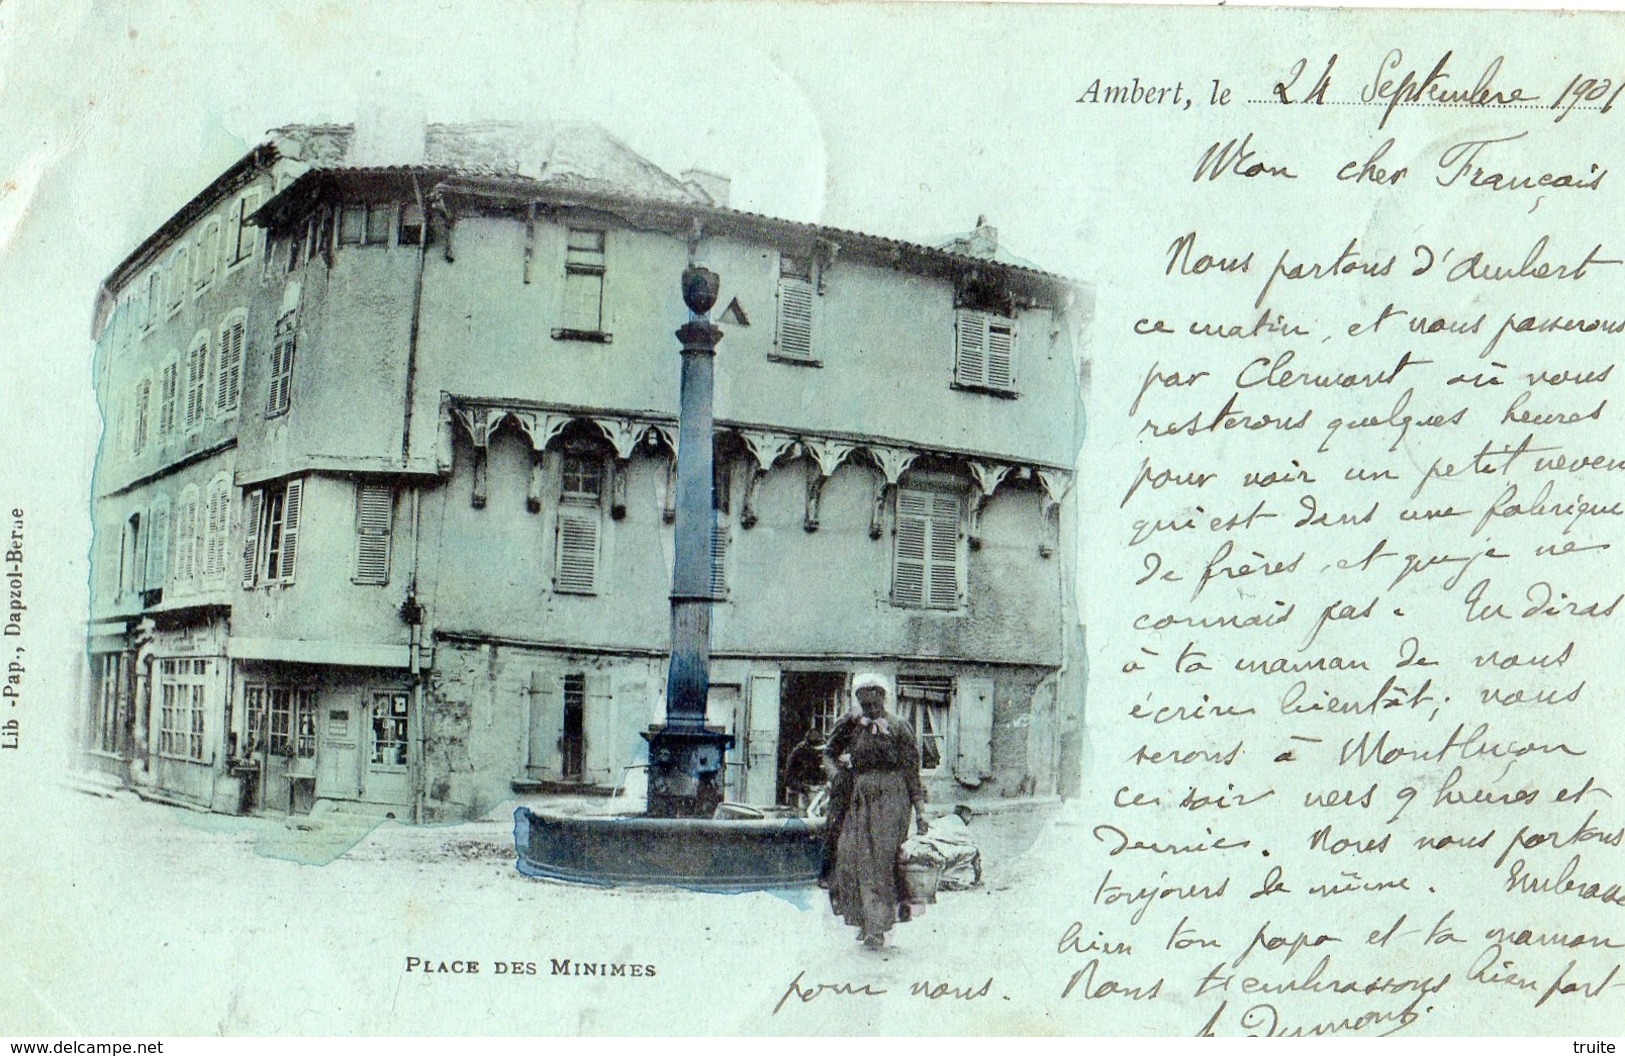 Ambert, le 24 Septembre 1901
Mon cher François
Nous partons d'Ambert
ce matin, et nous passerons
par Clermont où nous
resterons quelques heures
pour voir un petit neveu
qui est dans une fabrique
de frères, et que je ne
connais pas. Tu diras
à ta maman de nous
écrire bientôt; nous
serons à Montluçon
ce soir vers 9 heures et
demie. Nous nous portons
toujours de même. Embrasse
bien ton papa et ta maman
pour nous. Nous t'embrassons bien fort
Dumont
PLACE DES MINIMES
Lib -Pap., Dapzol-Berne
www.delcampe.net
truite